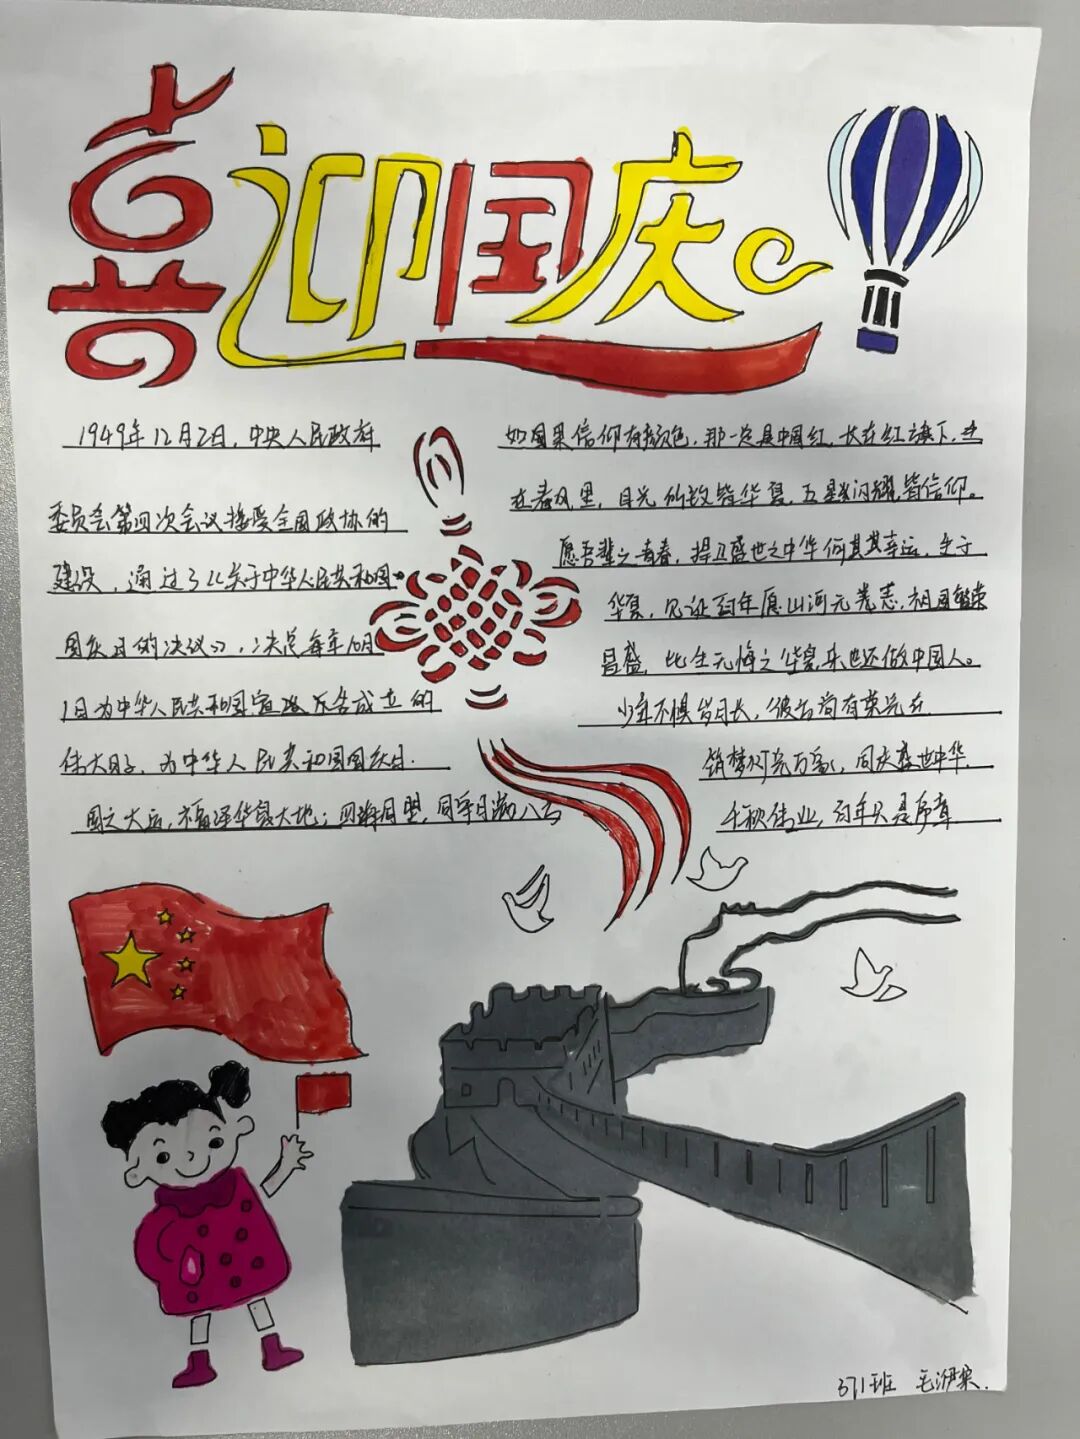 喜迎国庆
1949年12月2日，中央人民政府
委员会第四次会议接受全国政协的
建议，通过了《关于中华人民共和国
国庆日的决议》，决定每年10月
1日为中华人民共和国宣 告成立的
伟大日子，为中华人民共和国国庆日.
国之大 ，福泽华夏大地；四海同盟，同 八方
如果信仰有颜色，那一定是中国红，长在红旗下，生
在春风里，目光所致皆华夏，五星闪耀皆信仰。
愿吾辈之青春，捍卫盛世之中华何其幸运，生于
华夏，见证百年愿山河无恙，祖国繁荣
昌盛，此生无悔 华夏，来世还做中国人。
少年不惧岁月长，彼方尚有荣光在
筑梦 万象，同庆盛世中华.
千秋伟业，百年只是序章
671班 毛